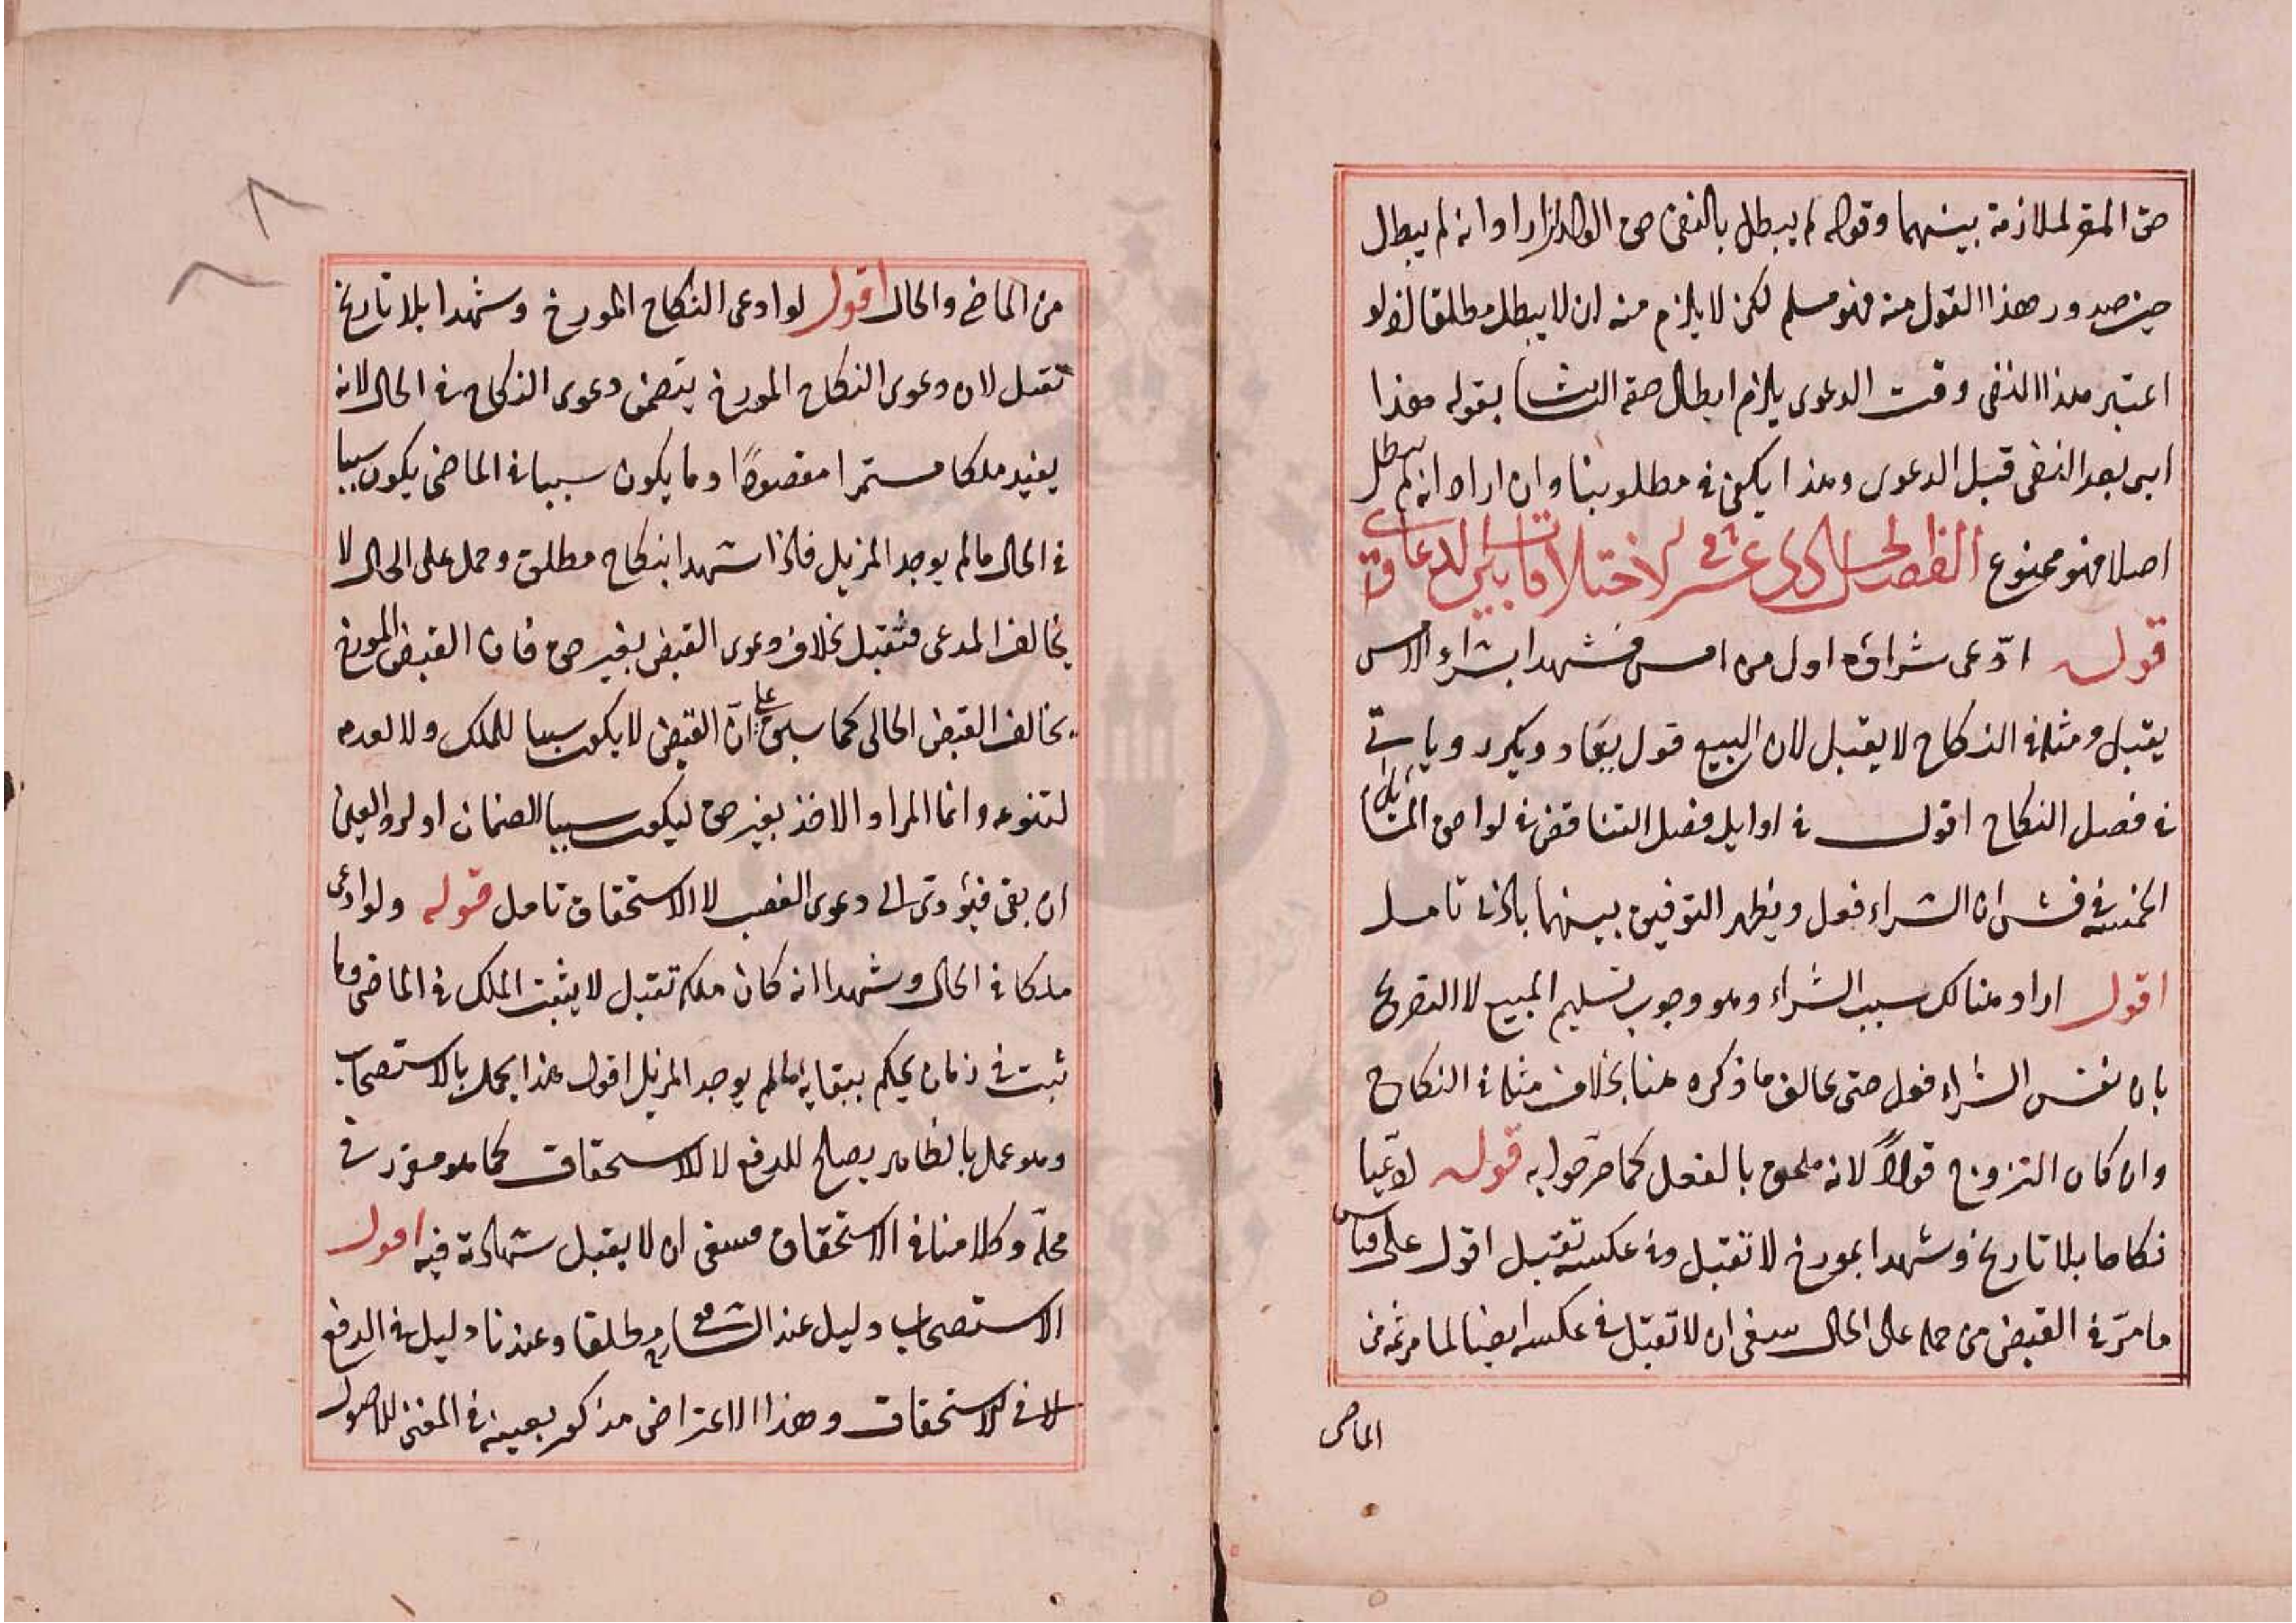 حق المقر لملازمة بينهما وقوله لم يبطل بالنفى حق الولد ان اراد انه لم يبطل
حين صدور هذا القول منه فهو مسلم لكن لا يلزم منه ان لا يبطل مطلقا اذ لو
اعتبر هذا النفى وقت الدعوى يلزم ابطال حقه الثابت بقوله هذا
ابنى بعد النفى قبل الدعوى وهذا يكفى فى مطلوبنا وان اراد انه لم يبطل
اصلا فهو ممنوع الفصل الحادى عشر فى الاختلافات بين الدعاوى
قوله ادّعى شراؤه اول من امس فشهدا بشراء الامس
يقبل ومثله فى النكاح لا يقبل لان البيع قول يعاد ويكرر وياتى
فى فصل النكاح اقول فى اوايل فصل التناقض فى لواحق المسائل
الخمسة فش ان الشراء فعل ويظهر التوفيق بينهما بادنى تامل
اقول اراد هنالك سبب الشراء وهو وجوب تسليم المبيع لا التصريح
بان نفس الشراء فعل حتى يخالف ما ذكره هنا بخلاف مثله فى النكاح
وان كان التزوج قولاً لانه ملحق بالفعل كما صرّحوا به قوله ادّعيا
نكاحا بلا تاريخ وشهدا بمورخ لا تقبل وفى عكسه تقبل اقول على قياس
ما مرّ فى القبض من حمله على الحال ينبغى ان لا تقبل فى عكسه ايضا لما مر ثمه من
الماضى
من الماضى والحال اقول لو ادعى النكاح المورخ وشهدا بلا تاريخ
تقبل لان دعوى النكاح المورخ يتضمن دعوى النكاح فى الحال لانه
يفيد ملكا مستمرا مقصودًا وما يكون سببا فى الماضى يكون سببا
فى الحال ما لم يوجد المزيل فاذا شهدا بنكاح مطلق وحمل على الحال لا
يخالف المدعى فتقبل بخلاف دعوى القبض بغير حق فان القبض المورخ
يخالف القبض الحالى كما سبق على انّ القبض لا يكون سببا للملك ولا لعدمه
لتنوعه وانما المراد الاخذ بغير حق ليكون سببا للضمان او لرد العين
ان بقى فيؤدى الى دعوى الغصب لا الاستحقاق تامل قوله ولو ادعى
ملكا فى الحال وشهدا انه كان ملكه تقبل لا يثبت الملك فى الماضى وما
ثبت فى زمان يحكم ببقايه ما لم يوجد المزيل اقول هذا عمل بالاستصحاب
وهو عمل بالظاهر يصلح للدفع لا للاستحقاق كما هو مقرر فى
محلّه وكلامنا فى الاستحقاق فينبغى ان لا يقبل شهادته فيه اقول
الاستصحاب دليل عند الشافعى مطلقا وعندنا دليل فى الدفع
لا فى الاستحقاق وهذا الاعتراض مذكور بعينه فى المغنى للاصول